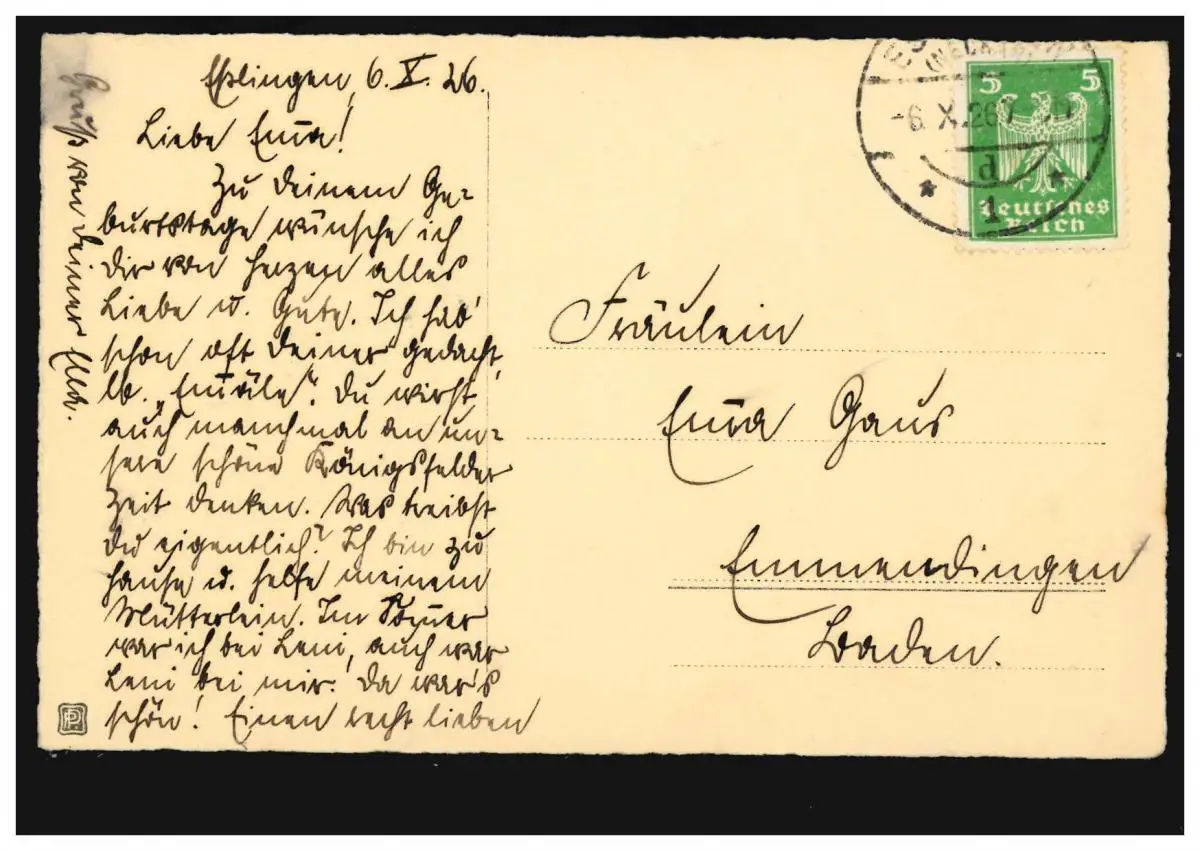 Eßlingen, 6. X. 26.
Liebe Em̅a!
Zu deinem Ge-
burtstage wünsche ich
dir von Herzen alles
Liebe u. Gute. Ich hab'
schon oft deiner gedacht,
lb. „Em̅äle". Du wirst
auch manchmal an un-
sere schöne Königsfelder
Zeit denken. Was treibst
du eigentlich? Ich bin zu
Hause u. helfe meinem
Mütterlein. Im Som̅er
war ich bei Leni, auch war
Leni bei mir. Da war's
schön! Einen recht lieben
Gruß von deiner
Fräulein
Em̅a Gaus
Emmendingen
Baden.
(NECKAR)
-6. X. 26 7
d
* 1 *
5 5
Deutsches
Reich